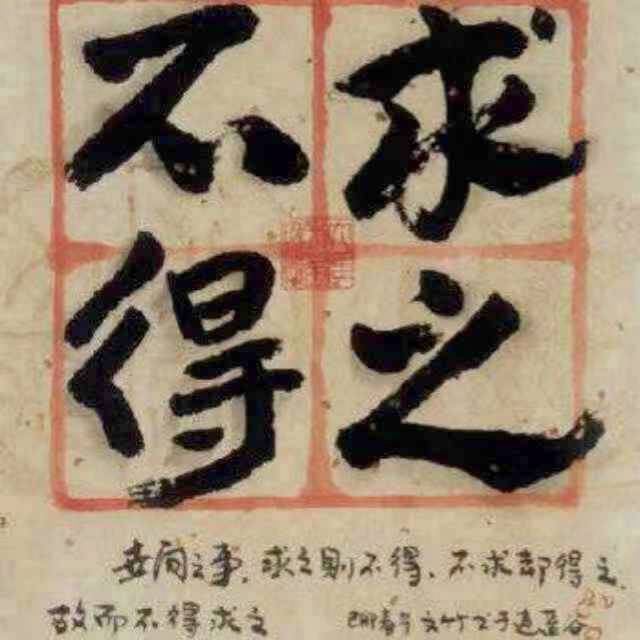 求之
不得
世间之事，求之则不得、不求却得之
故而不得求之